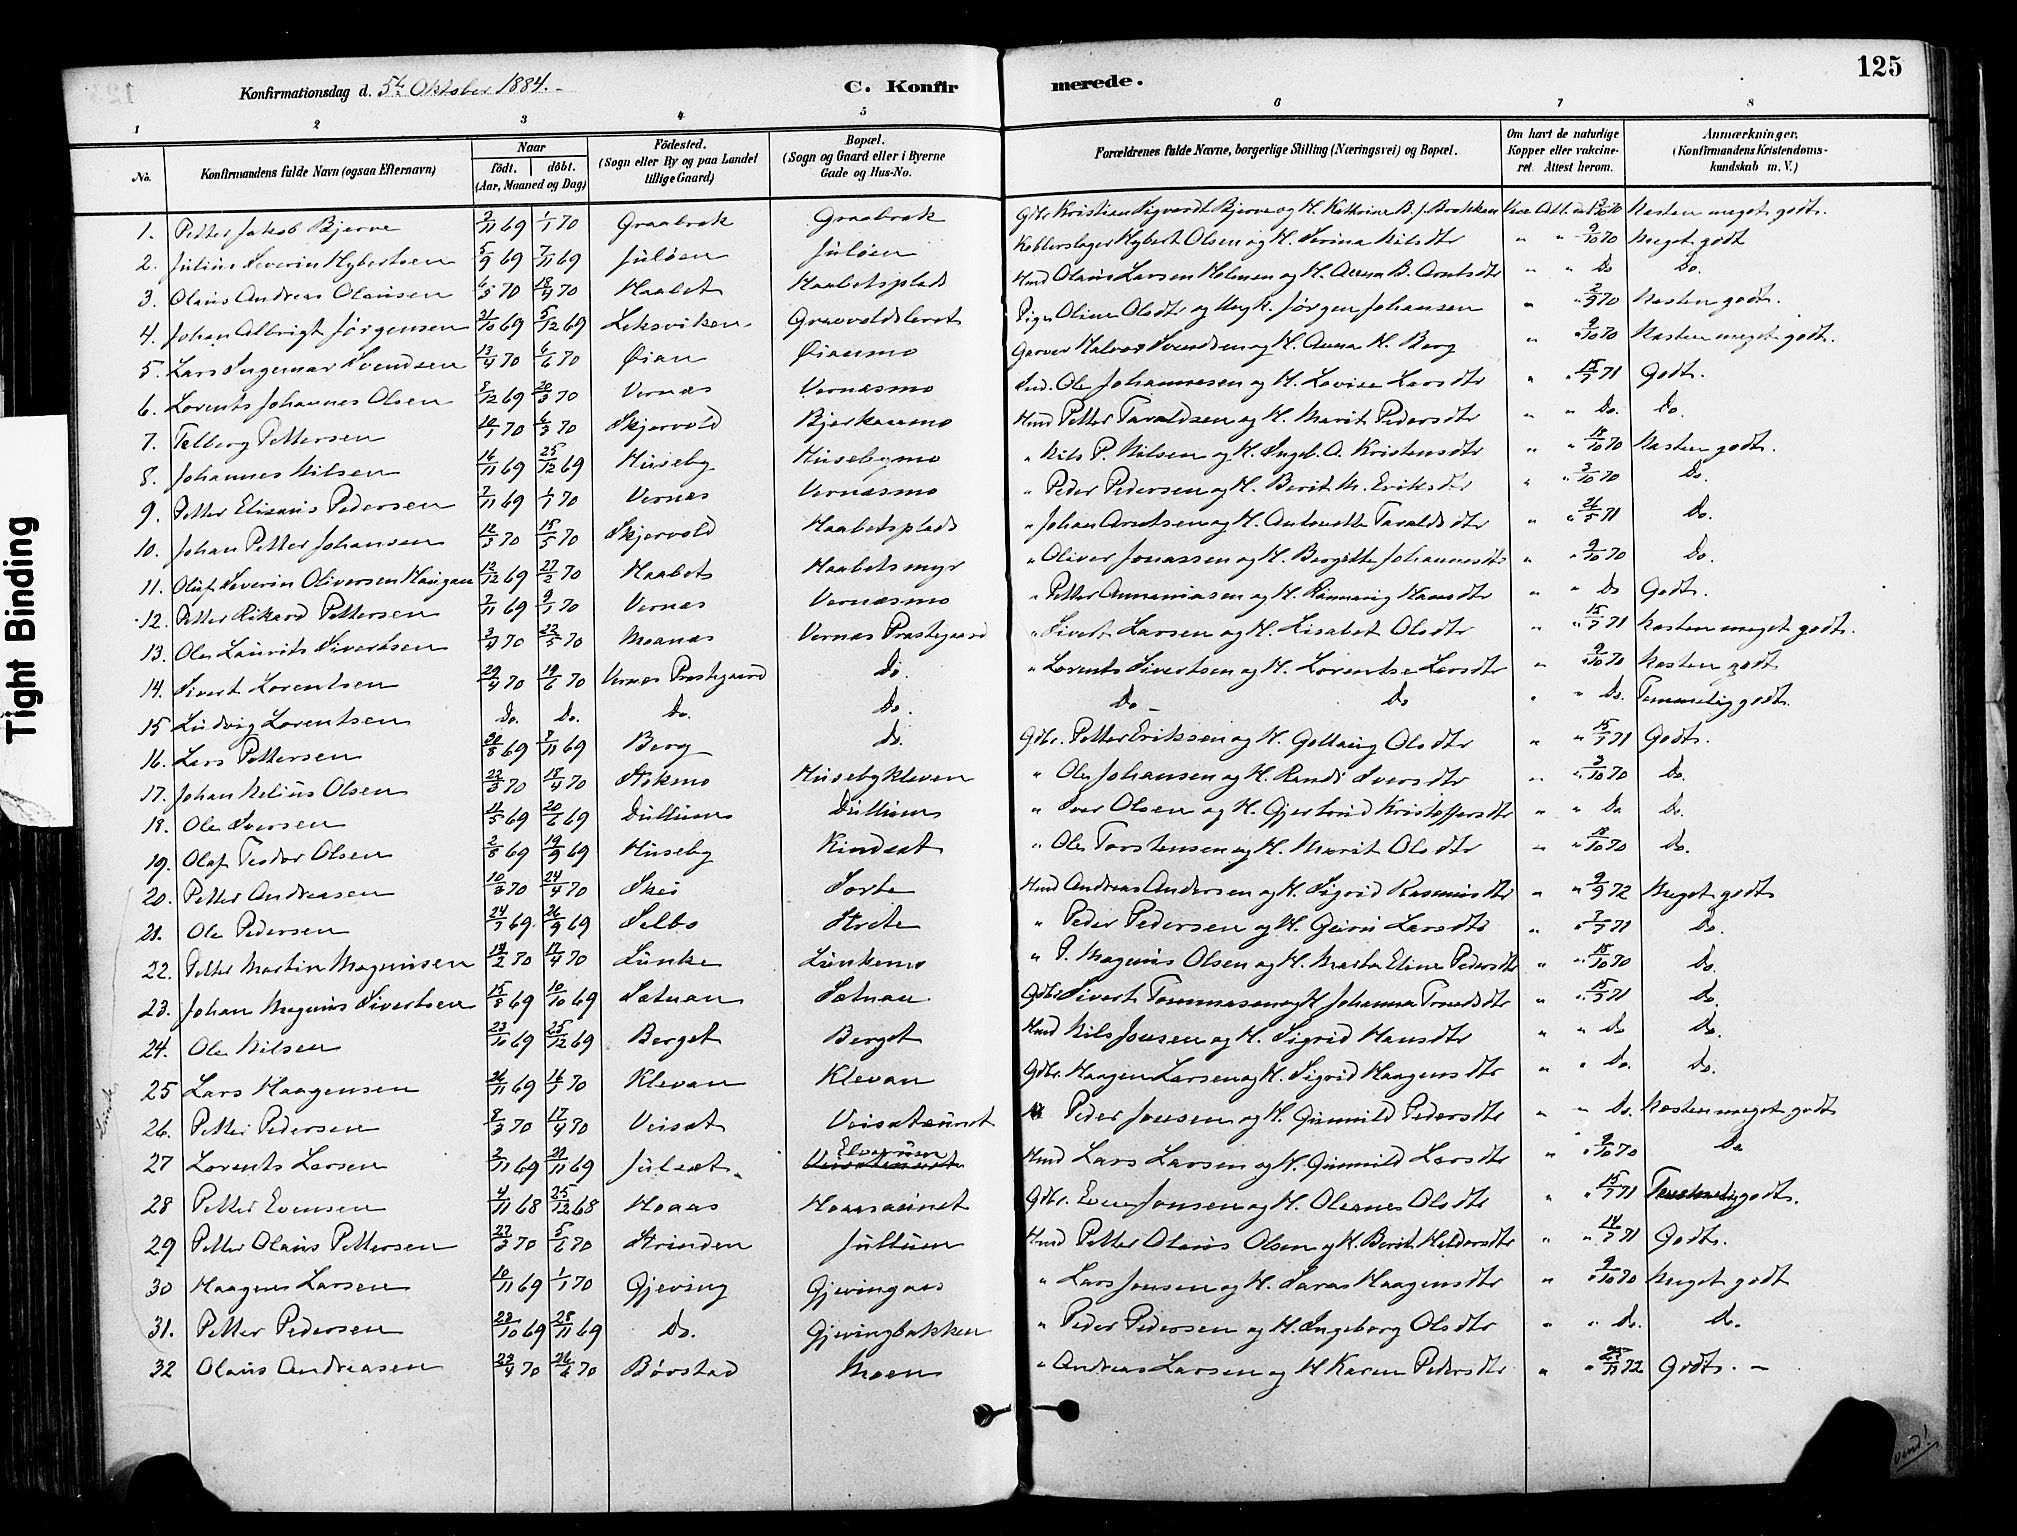 125
Konfirmationsdag d. 5te Oktober 1884.
C. Konfirmerede.
1 2 3 4 5 6 7 8
No.
Konfirmandens fulde Navn (ogsaa Efternavn)
Naar
födt. döbt.
(Aar, Maaned og Dag)
Födested.
(Sogn eller By og paa Landet
tillige Gaard)
Bopæl.
(Sogn og Gaard eller i Byerne
Gade og Hus-No.
Forældrenes fulde Navne, borgerlige Stilling (Næringsvei) og Bopæl.
Om havt de naturlige
Kopper eller vakcineret. Attest herom.
Anmærkninger,
(Konfirmandens Kristendomskundskab m. V.)
1. Petter Jakob Bjerve 2/11 69 1/1 70 Graabræk Graabræk Gdbr. Kristian Sigvardt Bjerve og H. Kathrine B. J. Brækken Vac. Att. 12/10 70 Næsten meget godt.
2. Julius Severin Hybertsen 5/9 69 7/11 69 Juløen Juløen Kobberslager Hybert Olsen og H. Serina Nilsdtr " " 9/10 70 Meget godt
3. Olaus Andreas Olausen 6/3 70 18/4 70 Haabet Haabetsplads Hmd Olaus Larsen Holmen og H. Anna B. Arntsdtr " " Do Do.
4. Johan Albrigt Jørgensen 21/10 69 5/12 69 Leksviken Pige Oline Olsdtr og Ungk. Jørgen Johansen " " 2/9 70 Næsten godt.
5. Lars Ingemar Svendsen 13/4 70 6/6 70 Øian Øianmo Garver Halvor Svendsen og H. Anna H. Berg " " 9/10 70 Næsten meget godt.
6. Lorents Johannes Olsen 8/12 69 20/3 70 Vernæs Vernæsmo Ind. Ole Johannesen og H. Lovise Larsdtr " " 15/7 71 Godt.
7. Telberg Pettersen 10/1 70 6/3 70 Skjervold Bjerkanmo Hmd Petter Taraldsen og H. Marit Pedersdtr " " Do. Do.
8. Johannes Nilsen 16/11 69 25/12 69 Huseby Husebymo " Nils P. Nilsen og H. Ingeb. A. Kristensdtr " " 18/10 70 Næsten godt.
9. Petter Elisæus Pedersen 7/11 69 1/1 70 Vernæs Vernæsmo " Peder Pedersen og H. Berit M. Eriksdtr " " 3/10 70 Do.
10. Johan Petter Johansen 12/3 70 15/5 70 Skjervold Haabetsplads " Johan Arntsen og H. Antonette Taraldsdtr " " 26/5 71 Do.
11. Oluf Severin Oliversen Haugan 12/12 69 27/2 70 Haabets Haabetsmyr " Oliver Jonassen og H. Bergitte Johannesdtr " " 9/10 70 Do.
12. Petter Rikard Pettersen 7/11 69 9/1 70 Vernæs Vernæsmo " Petter Annaniasen og H. Rannveig Hansdtr " " Do Godt.
13. Ole Laurits Sivertsen 3/4 70 22/5 70 Moanæs Vernæs Præstegaard " Sivert Larsen og H. Lisabet Olsdtr " " 15/7 71 Næsten meget godt.
14. Sivert Lorentsen 29/4 70 19/6 70 Vernæs Præstegaard Do. " Lorents Sivertsen og H. Lorentse Larsdtr " " 9/10 70 Næsten godt
15 Ludvig Lorentsen Do. Do. Do. Do. Do Do " " Do. Temmelig godt.
16. Lars Pettersen 30/8 69 7/11 69 Berg Do. Gdbr. Petter Eriksen og H. Gollaug Olsdtr " " 15/7 71 Godt.
17. Johan Nelius Olsen 22/3 70 18/4 70 Stokmo Husebykleven " Ole Johansen og H. Randi Iversdtr " " 3/10 70 Do.
18. Ole Iversen 11/5 69 20/6 69 Dullum Dullum " Iver Olsen og H. Gjertrud Kristoffersdtr " " Do Do.
19. Olaf Teodor Olsen 2/8 69 19/9 69 Huseby Kindset " Ole Torstensen og H. Marit Olsdtr " " 18/10 70 Do.
20. Petter Andreasen 10/3 70 24/4 70 Skei Sorte Hmd Andreas Andersen og H. Sigrid Rasmusdtr " " 9/9 72 Meget godt
21. Ole Pedersen 24/7 69 26/9 69 Selbo Strete " Peder Pedersen og H. Guru Larsdtr " " 7/7 71 Do.
22. Petter Martin Magnusen 19/2 70 17/4 70 Lunke Lunkemo " P. Magnus Olsen og H. Marta Eline Pedersdtr " " 18/10 70 Do.
23. Johan Magnus Sivertsen 15/8 69 10/10 69 Sætnan Sætnan Gdbr. Sivert Tommasen og H Johanna Trondsdtr " " 15/7 71 Do.
24. Ole Nilsen 23/10 69 25/12 69 Berget Berget Hmd Nils Jonsen og H. Sigrid Hansdtr " " Do Do.
25 Lars Haagensen 26/11 69 16/1 70 Klevan Klevan Gdbr. Haagen Larsen og H. Sigrid Haagensdtr " " Do. Do.
26. Petter Pedersen 8/3 70 17/4 70 Veisæt Veisætaunet " Peder Jonsen og H. Gunnild Pedersdtr " " Do. Næsten meget godt
27 Lorents Larsen 2/11 69 21/11 69 Julset. Elverum Hmd Lars Larsen og H. Gunnild Larsdtr " " 9/10 70 Do
28 Petter Evensen 4/11 68 25/12 68 Hoaas Hoaasaunet Gdbr. Even Jonsen og H. Oleanes Olsdtr " " 15/7 71 Temmelig godt.
29 Petter Olaus Pettersen 27/3 70 5/6 70 Strinden Jullum Hmd Petter Olaus Olsen og H. Berit Haldorsdtr " " 14/7 71 Godt.
30 Haagen Larsen 10/11 69 1/1 70 Gjeving Gjevingaas " Lars Jonsen og H. Saras Haagensdtr " " 9/10 70 Meget godt
31. Petter Pedersen 20/10 69 28/11 69 Do. Gjevingbakken " Peder Pedersen og H. Ingeborg Olsdtr " " Do. Do.
32 Olaus Andreasen 23/4 70 26/6 70 Børstad Moen " Andreas Larsen og H Karen Pedersdtr " " 25/11 72 Godt. –
vend!
Tight Binding